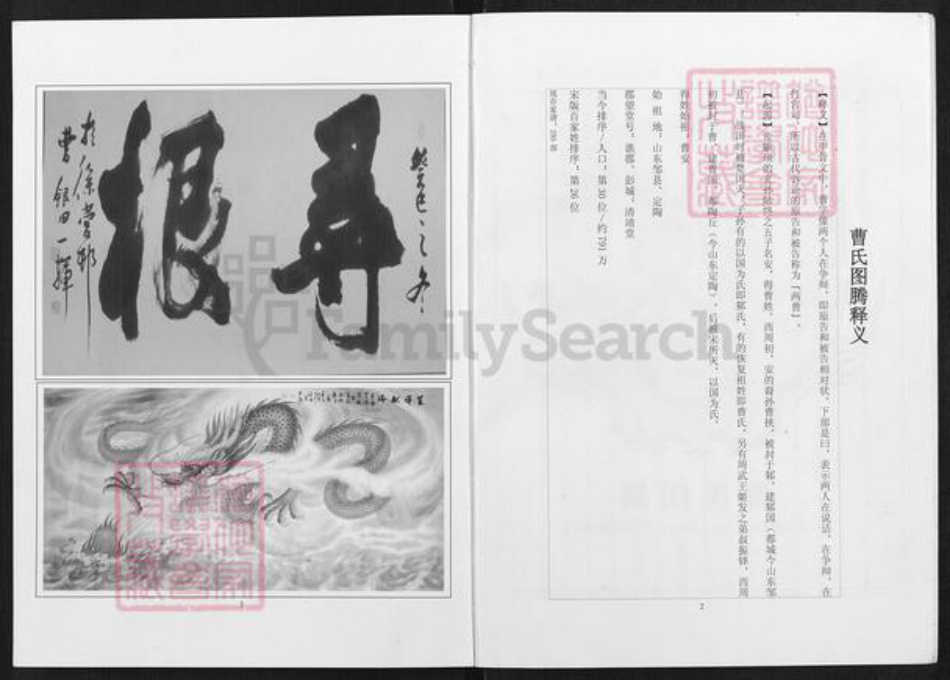 尋根
曹银田一挥
曹氏图腾释义
【释义】在甲骨文中，曹字像两个人在争辩，即原告和被告相对状，下部是曰，表示两人在说话，在争辩，在
打官司，所以古代诉讼的原告和被告称为“两曹”。
之五子名安，得曹姓。西周初，安的裔孙曹挟，被封于邾，建邾国（都城今山东邹
县），战国时被楚国灭，子孙有的以国为氏即邾氏，有的恢复祖姓即曹氏。另有周武王姬发之弟叔振铎，西周
初被封于曹，建曹国，都陶丘（今山东定陶），后被宋所灭，以国为氏。
得姓始祖：曹安
始 祖 地：山东邹县、定陶
郡望堂号：谯郡、彭城、清靖堂
当今排序/人口：第30位/约791万
宋版百家姓排序：第26位
现存家谱：286部
FamilySearch
1
2